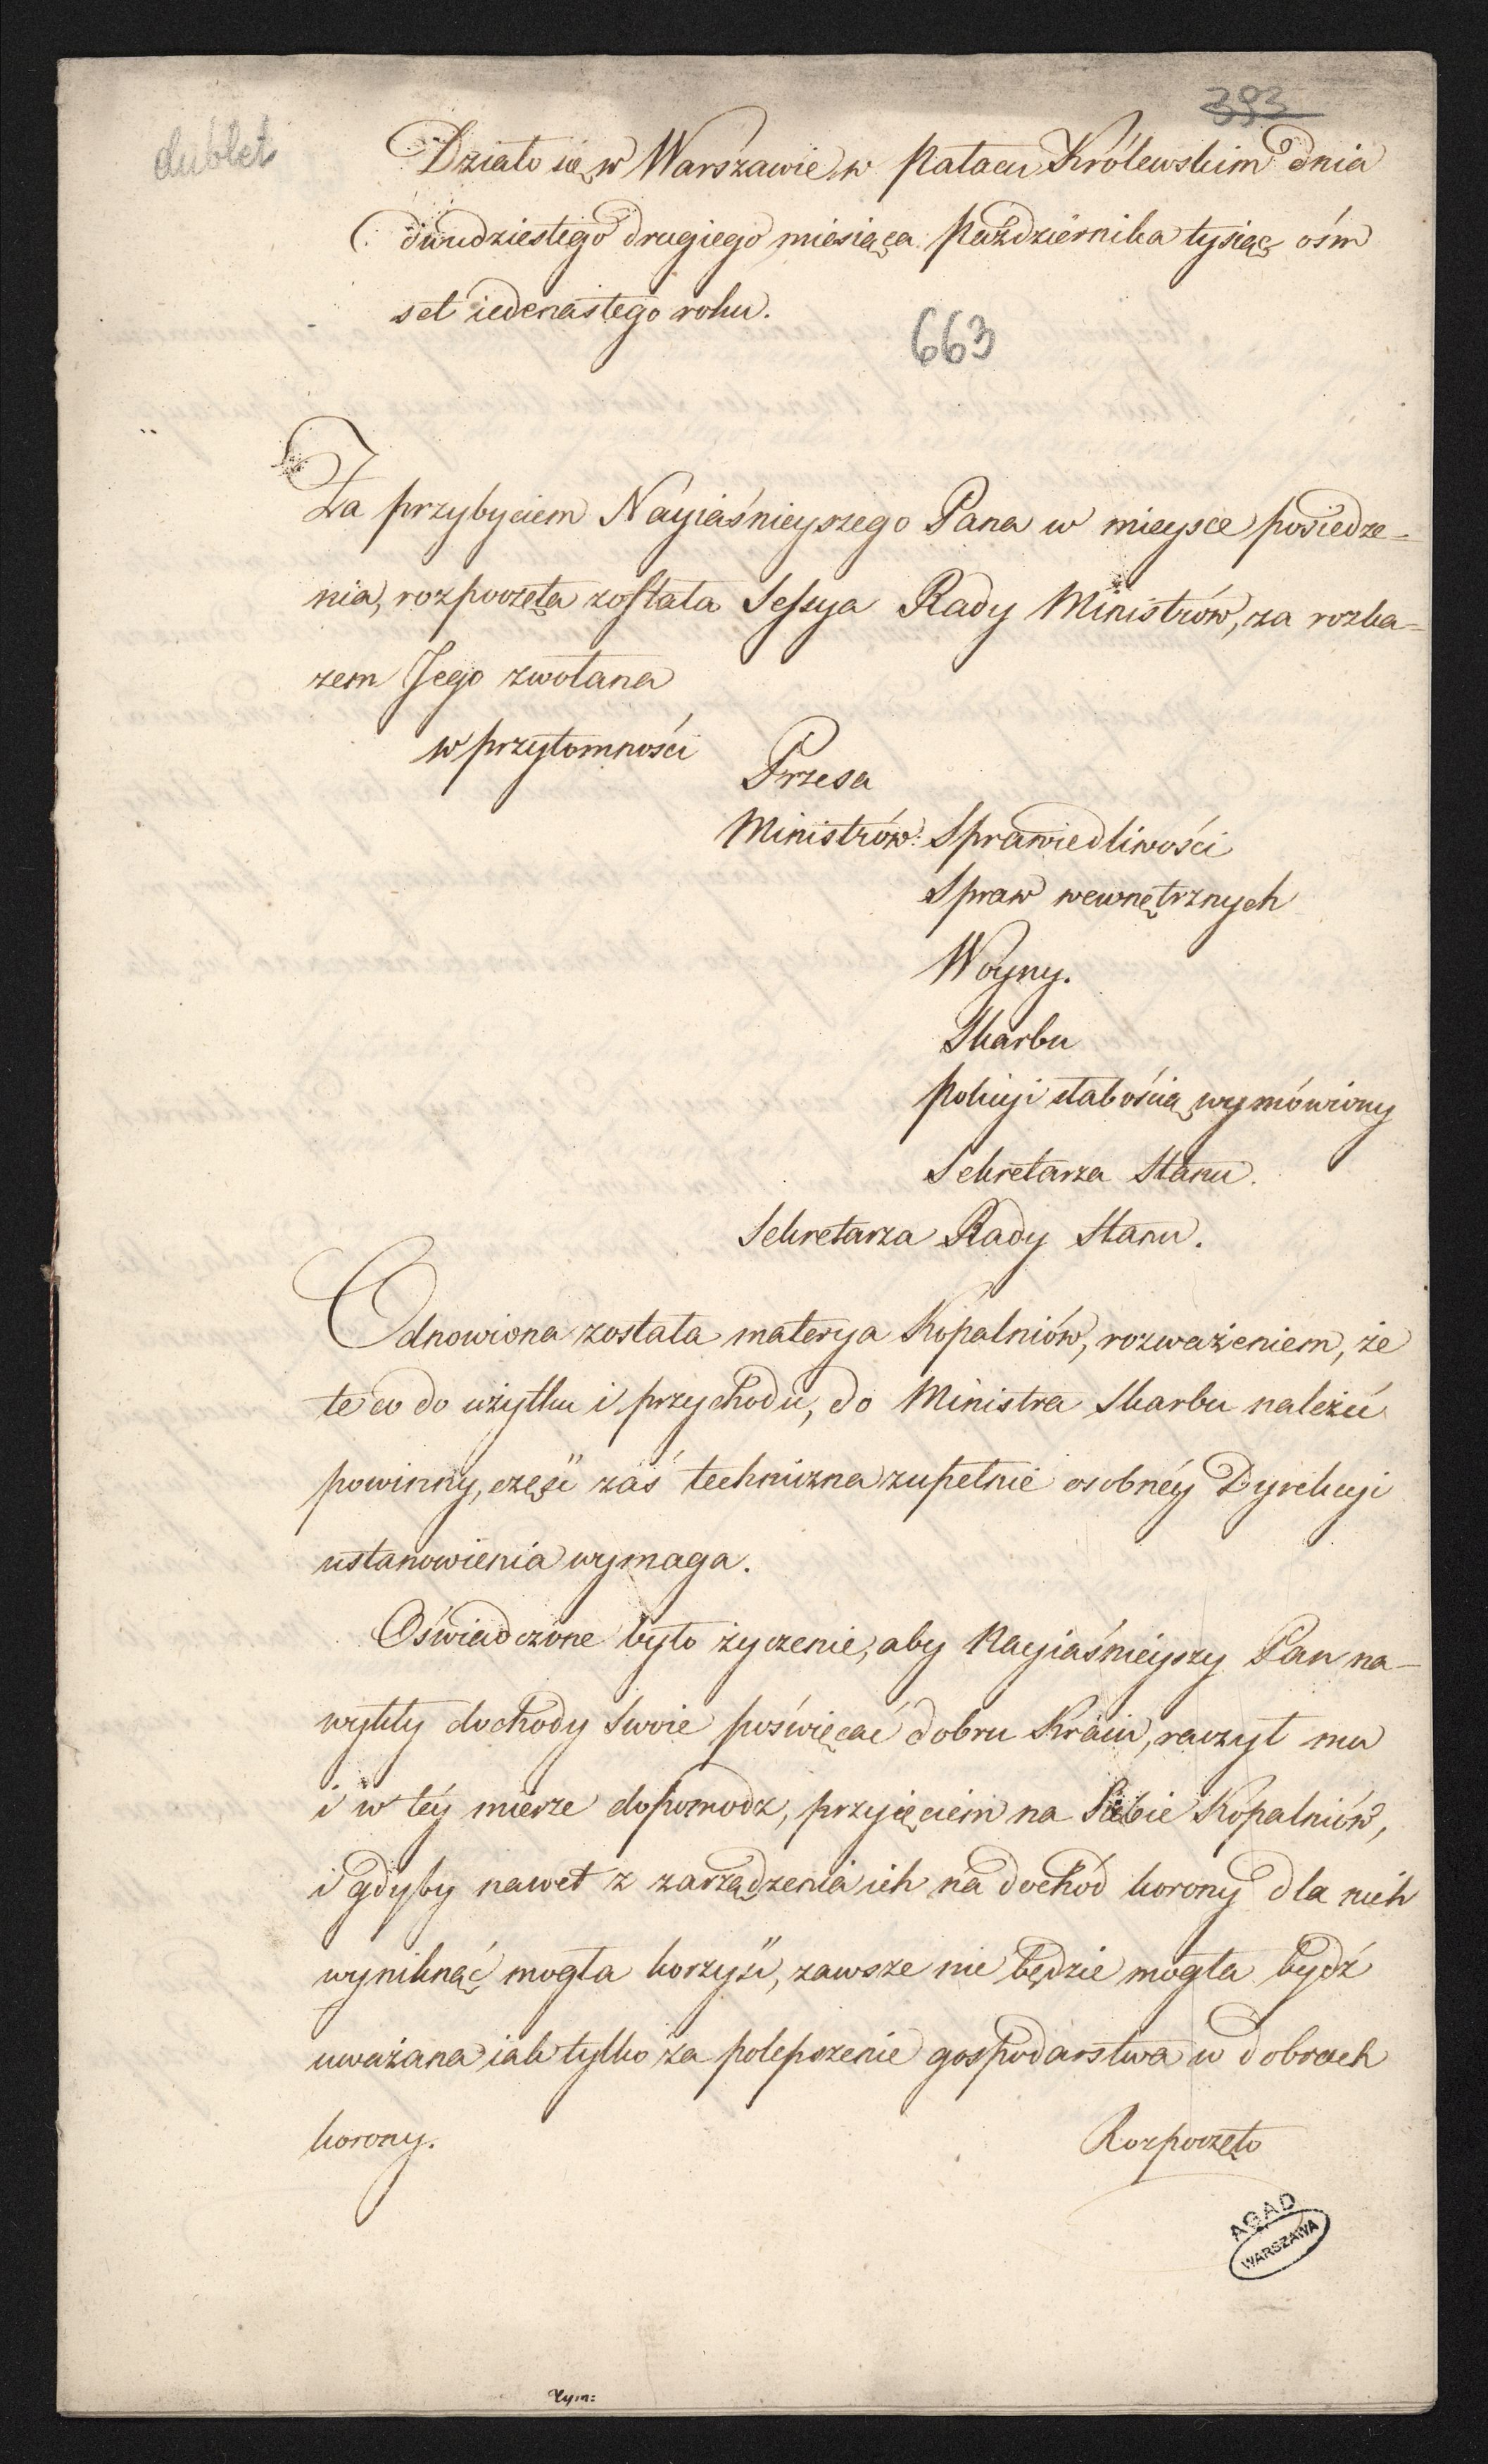 393
dublet
Działo się w Warszawie w Pałacu Królewskim dnia
dwudziestego drugiego miesiąca Października tysiąc óśm
set iedenastego roku.
663
Za przybyciem Nayiaśnieyszego Pana w mieysce posiedze-
nia, rozpoczęta została Sessya Rady Ministrów, za rozka-
zem Jego zwołana
w przytomności
Prezesa
Ministrów: Sprawiedliwości
Spraw wewnętrznych
Woyny.
Skarbu
Policyi słabością wymówiony
Sekretarza Stanu.
Sekretarza Rady Stanu.
Odnowiona została materya Kopalniów, rozważeniem, że
te co do użytku i przychodu, do Ministra Skarbu należéć
powinny, część zaś techniczna zupełnie osobnéy Dyrekcyi
ustanowienia wymaga.
Oświadczone było życzenie, aby Nayiaśnieyszy Pan na-
wykły dochody swoie poświęcać dobru Kraiu, raczył mu
i w téy mierze dopomodz, przyięciem na Siebie Kopalniów,
i gdyby nawet z zarządzenia ich na dochód korony dla nich
wyniknąć mogła korzyść, zawsze nie będzie mogła bydź
uważana iak tylko za polepszenie gospodarstwa w dobrach
korony.
Rozpoczęto
AGAD
WARSZAWA
Rym: